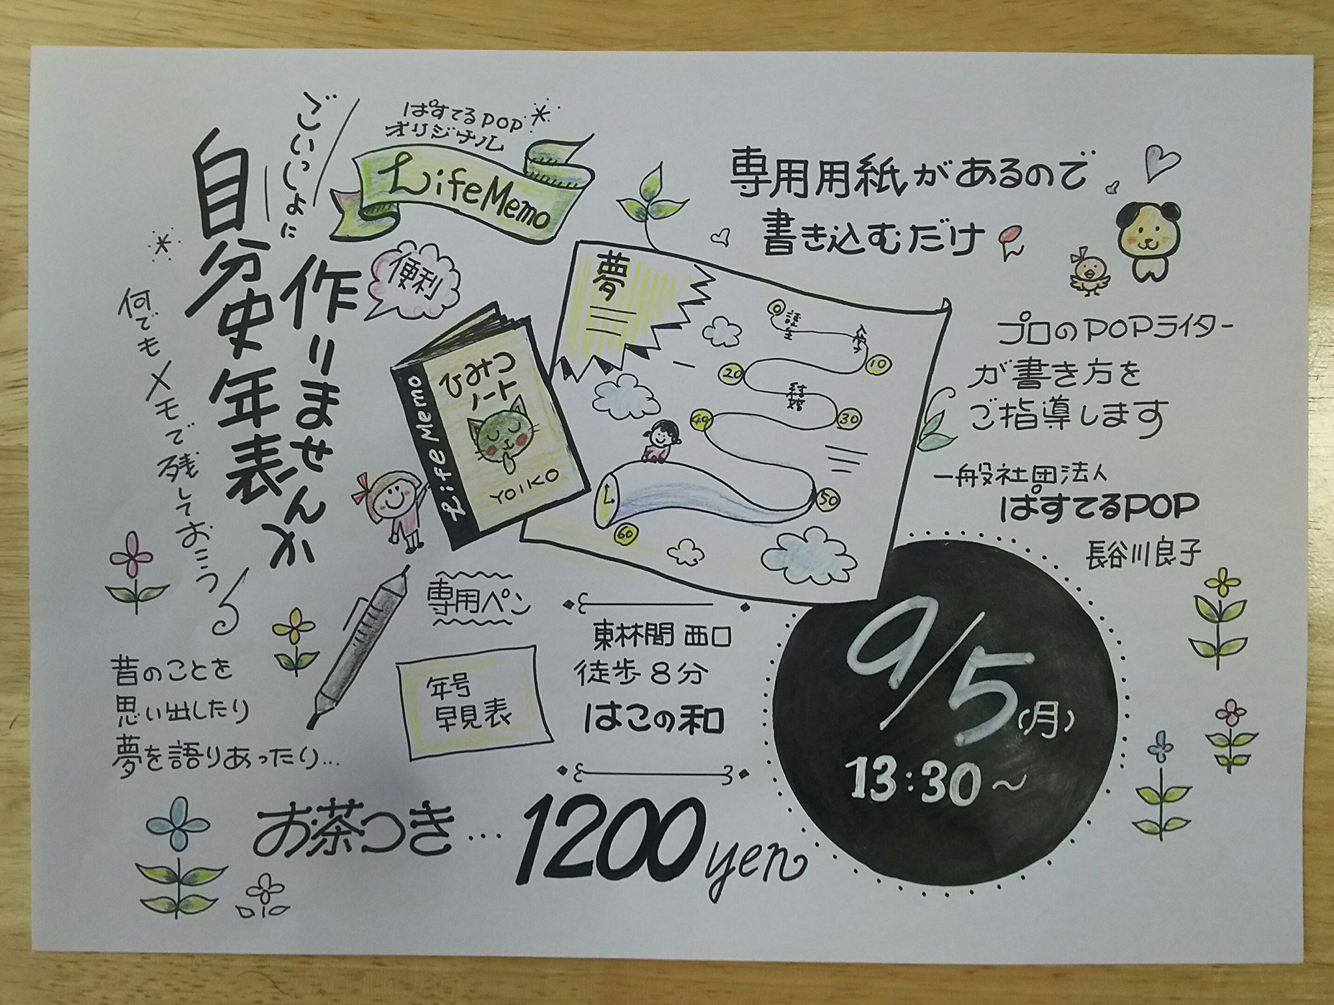 ごいっしょに
自分史年表
作りませんか
何でもメモで残しておこう
ぱすてるPOP
オリジナル
LifeMemo
便利
Life Memo
ひみつ
ノート
YOIKO
夢
0
誕生
入学
10
20
結婚
30
40
50
60
専用用紙があるので
書き込むだけ
プロのPOPライター
が書き方を
ご指導します
一般社団法人
ぱすてるPOP
長谷川良子
専用ペン
年号
早見表
東林間 西口
徒歩8分
はこの和
9/5(月)
13:30~
昔のことを
思い出したり
夢を語りあったり…
お茶つき…1200yen